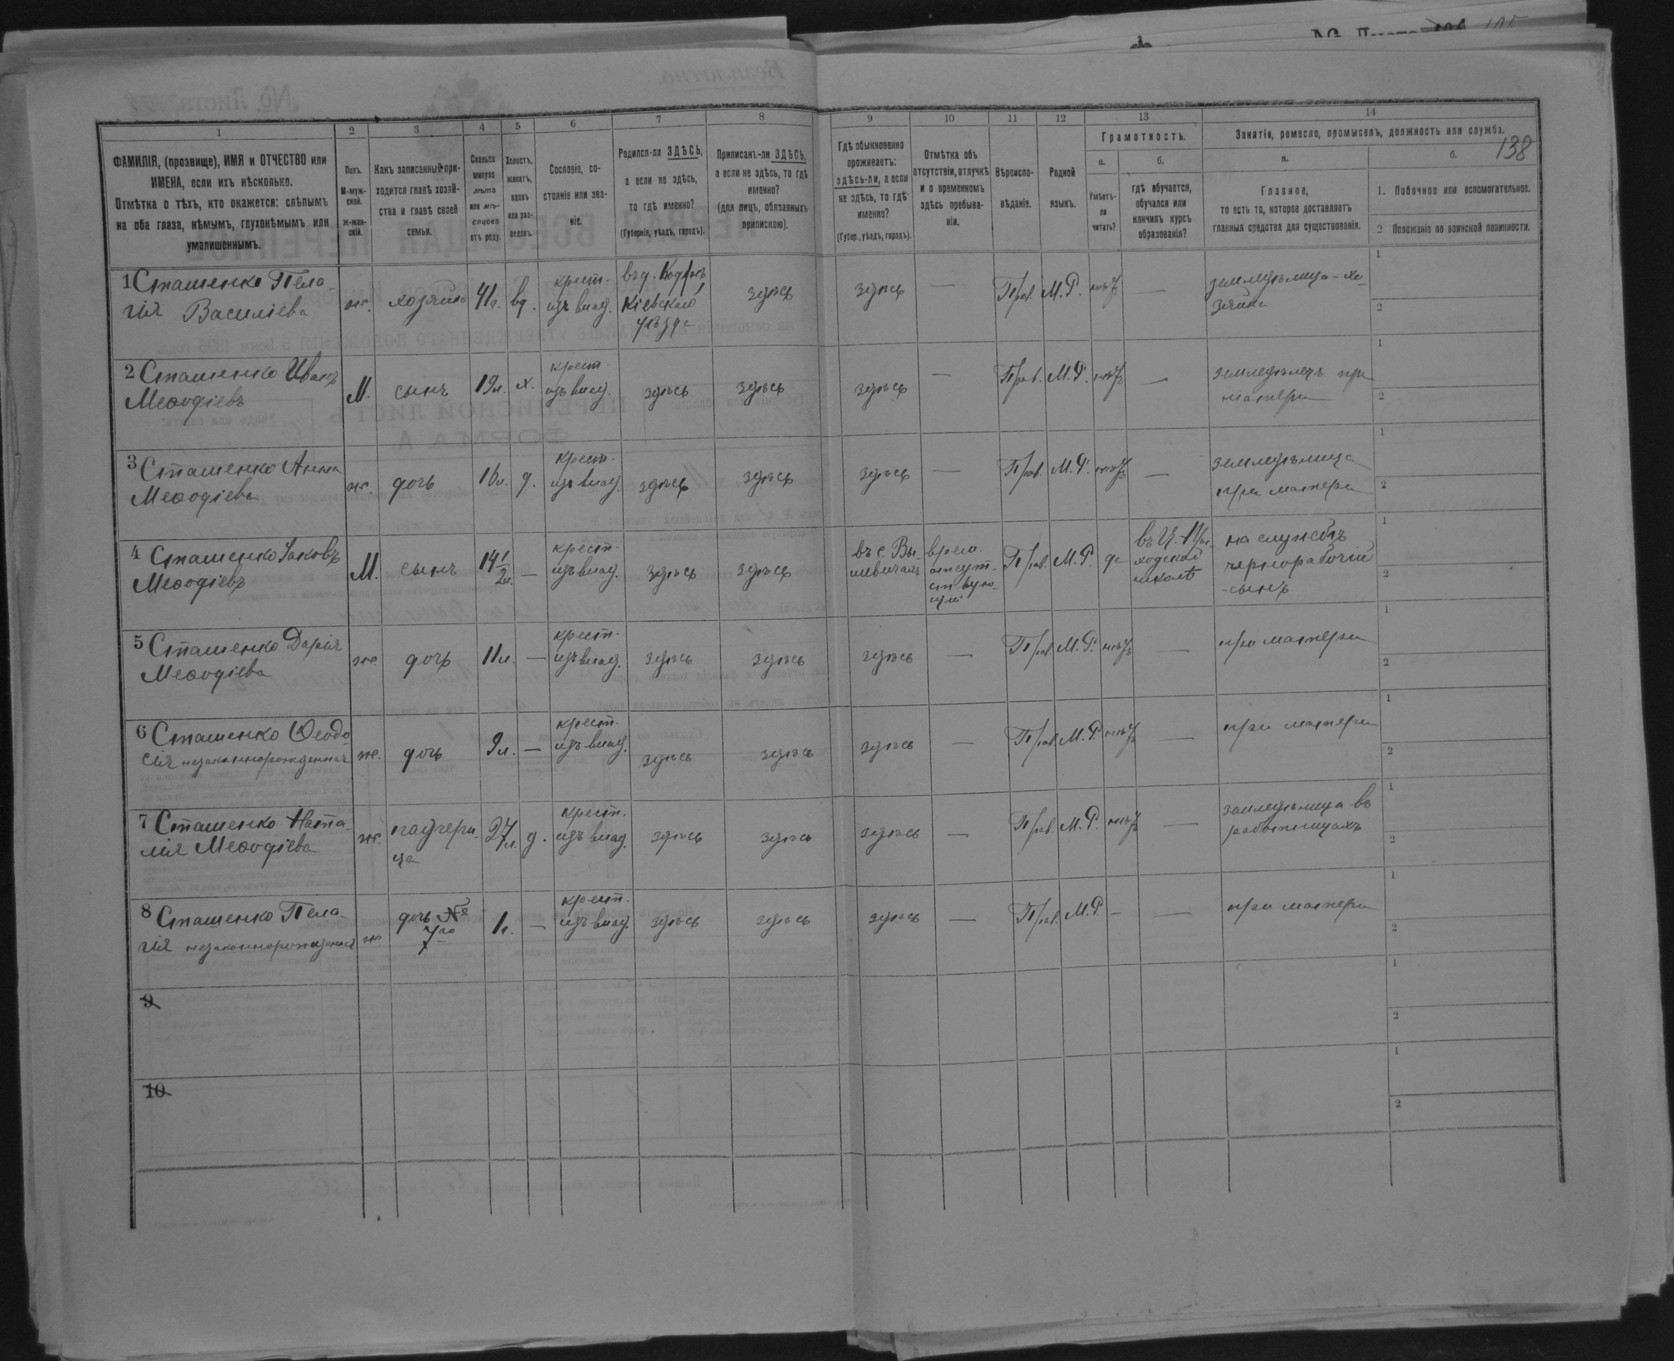 № Листа
138
1
2
3
4
5
6
7
8
9
10
11
12
13
14
ФАМИЛІЯ, (прозвище), ИМЯ и ОТЧЕСТВО или
ИМЕНА, если ихъ нѣсколько.
Отмѣтка о тѣхъ, кто окажется: слѣпымъ
на оба глаза, нѣмымъ, глухонѣмымъ или
умалишеннымъ.
Полъ.
М-муж-
ской.
ж-жен-
скій.
Какъ записанный при-
ходится главѣ хозяй-
ства и главѣ своей
семьи.
Сколько
минуло
лѣтъ
или мѣ-
сяцевъ
отъ роду.
Холостъ,
женатъ,
вдовъ
или раз-
веденъ.
Сословіе, со-
стояніе или зва-
ніе.
Родился-ли ЗДѢСЬ,
а если не здѣсь,
то гдѣ именно?
(Губернія, уѣздъ, городъ).
Приписанъ-ли ЗДѢСЬ,
а если не здѣсь, то гдѣ
именно?
(для лицъ, обязанныхъ
припискою).
Гдѣ обыкновенно
проживаетъ:
здѣсь-ли, а если
не здѣсь, то гдѣ
именно?
(Губер., уѣздъ, городъ).
Отмѣтка объ
отсутствіи, отлучкѣ
и о временномъ
здѣсь пребыва-
ніи.
Вѣроиспо-
вѣданіе.
Родной
языкъ.
Грамотность.
а.
Умѣетъ-
ли
читать?
б.
гдѣ обучается,
обучался или
кончилъ курсъ
образованія?
Занятіе, ремесло, промыселъ, должность или служба.
а.
Главное,
то есть то, которое доставляетъ
главныя средства для существованія.
б.
1. Побочное или вспомогательное.
2 Положеніе по воинской повинности.
1 Сташенко Пела-
гія Василіева
ж. хозяйка 41г. вд. крест. изъ влад.
въ д.
Кіевскаго
уѣзда
здѣсь здѣсь — Прав. М.Р. нѣтъ —
земледѣлица-хо-
зяйка
2 Сташенко Иванъ
Меѳодіевъ
М. сынъ 19л. х. крест. изъ влад. здѣсь здѣсь здѣсь — Прав. М.Р. нѣтъ —
земледѣлецъ при
матери
3 Сташенко Анна
Меѳодіева
ж. дочь 16л. д. крест. изъ влад. здѣсь здѣсь здѣсь — Прав. М.Р. нѣтъ —
земледѣлица
при матери
4 Сташенко Іаковъ
Меѳодіевъ
М. сынъ 14 1/2 л. — крест. изъ влад. здѣсь здѣсь
въ с. Вы-
шевичахъ
врем.
отсут-
ствую-
щій
Прав. М.Р. да
въ Ц. При-
ходской
школѣ
на службѣ
чернорабочій
-сынъ
5 Сташенко Дарія
Меѳодіева
ж. дочь 11л. — крест. изъ влад. здѣсь здѣсь здѣсь — Прав. М.Р. нѣтъ — при матери
6 Сташенко Ѳеодо-
сія незаконнорожденная
ж. дочь 9л. — крест. изъ влад. здѣсь здѣсь здѣсь — Прав. М.Р. нѣтъ — при матери
7 Сташенко Ната-
лія Меѳодіева
ж. падчери-
ца
27 л. д. крест. изъ влад. здѣсь здѣсь здѣсь — Прав. М.Р. нѣтъ —
земледѣлица въ
работницахъ
8 Сташенко Пела-
гія незаконнорожденная
ж. дочь №
7го
1г. — крест. изъ влад. здѣсь здѣсь здѣсь — Прав. М.Р — — при матери
9
10